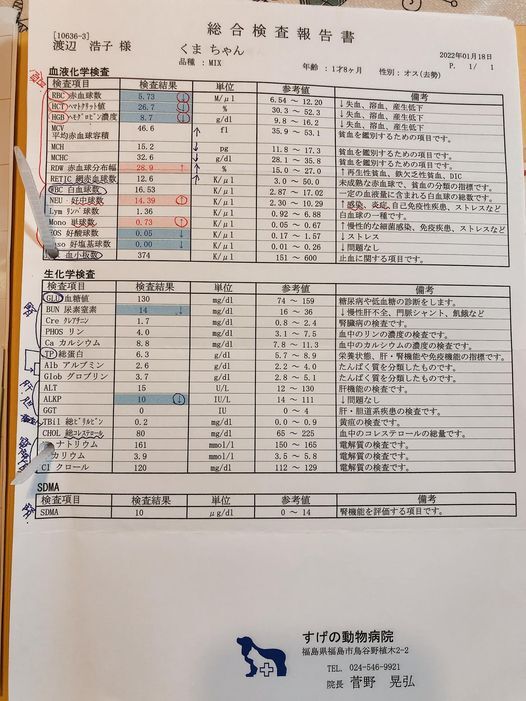 総合検査報告書
[10636-3]
渡辺 浩子 様 くま ちゃん 2022年01月18日
品種 : MIX 年齢 : 1才8ヶ月 性別 : オス(去勢) P. 1/ 1
血液化学検査
検査項目 検査結果 単位 参考値 備考
RBC 赤血球数 5.73 ↓ M/μl 6.54 ～ 12.20 ↓失血、溶血、産生低下
HCT ヘマトクリット値 26.7 ↓ % 30.3 ～ 52.3 ↓失血、溶血、産生低下
HGB ヘモグロビン濃度 8.7 ↓ g/dl 9.8 ～ 16.2 ↓失血、溶血、産生低下
MCV 平均赤血球容積 46.6 fl 35.9 ～ 53.1 貧血を鑑別するための項目です。
MCH 15.2 pg 11.8 ～ 17.3 貧血を鑑別するための項目です。
MCHC 32.6 g/dl 28.1 ～ 35.8 貧血を鑑別するための項目です。
RDW 赤血球分布幅 28.9 ↑ % 15.0 ～ 27.0 ↑再生性貧血、鉄欠乏性貧血、DIC
RETIC 網赤血球数 12.6 K/μl 3.0 ～ 50.0 未成熟な赤血球で、貧血の分類の指標です。
WBC 白血球数 16.53 K/μl 2.87 ～ 17.02 一定の血液量に含まれる白血球の総数です。
NEU 好中球数 14.39 ↑ K/μl 2.30 ～ 10.29 ↑感染、炎症、自己免疫性疾患、ストレスなど
Lym リンパ球数 1.36 K/μl 0.92 ～ 6.88 白血球の一種です。
Mono 単球数 0.73 ↑ K/μl 0.05 ～ 0.67 ↑慢性的な細菌感染、免疫疾患、ストレスなど
EOS 好酸球数 0.05 ↓ K/μl 0.17 ～ 1.57 ↓ストレス
Baso 好塩基球数 0.00 ↓ K/μl 0.01 ～ 0.26 ↓問題なし
血小板数 374 K/μl 151 ～ 600 止血に関する項目です。
生化学検査
検査項目 検査結果 単位 参考値 備考
GLU 血糖値 130 mg/dl 74 ～ 159 糖尿病や低血糖の診断をします。
BUN 尿素窒素 14 ↓ mg/dl 16 ～ 36 ↓慢性肝不全、門脈シャント、飢餓など
Cre クレアチニン 1.7 mg/dl 0.8 ～ 2.4 腎臓病の検査です。
PHOS リン 4.0 mg/dl 3.1 ～ 7.5 血中のリンの濃度の検査です。
Ca カルシウム 8.8 mg/dl 7.8 ～ 11.3 血中のカルシウムの濃度の検査です。
TP 総蛋白 6.3 g/dl 5.7 ～ 8.9 栄養状態、肝・腎機能や免疫機能の指標です。
Alb アルブミン 2.6 g/dl 2.2 ～ 4.0 たんぱく質を分類したものです。
Glob グロブリン 3.7 g/dl 2.8 ～ 5.1 たんぱく質を分類したものです。
ALT 15 U/L 12 ～ 130 肝機能の検査です。
ALKP 10 ↓ IU/L 14 ～ 111 ↓問題なし
GGT 0 IU 0 ～ 4 肝・胆道系疾患の検査です。
TBil 総ビリルビン 0.2 mg/dl 0.0 ～ 0.9 黄疸の検査です。
CHOL 総コレステロール 80 mg/dl 65 ～ 225 血中のコレステロールの総量です。
ナトリウム 161 mmol/l 150 ～ 165 電解質の検査です。
カリウム 3.9 mmol/l 3.5 ～ 5.8 電解質の検査です。
Cl クロール 120 mg/dl 112 ～ 129 電解質の検査です。
SDMA
検査項目 検査結果 単位 参考値 備考
SDMA 10 μg/dl 0 ～ 14 腎機能を評価する項目です。
すげの動物病院
福島県福島市鳥谷野植木2-2
TEL. 024-546-9921
院長 菅野 晃弘